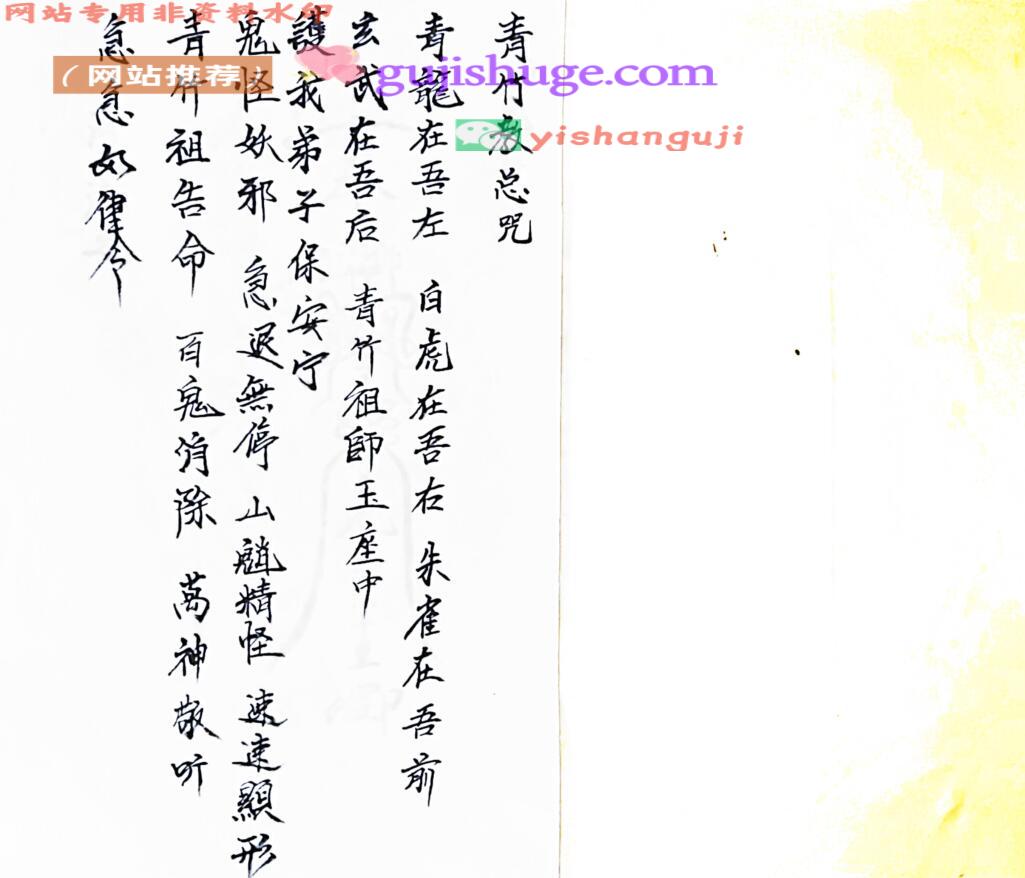 网站专用非资料水印
（网站推荐）
gujishuge.com
yishanguji
青竹教总咒
青龍在吾左 白虎在吾右 朱雀在吾前
玄武在吾后 青竹祖師玉座中
護我弟子保安宁
鬼怪妖邪 急退無停 山魈精怪 速速顯形
青竹祖告命 百鬼消除 萬神敬听
急急如律令